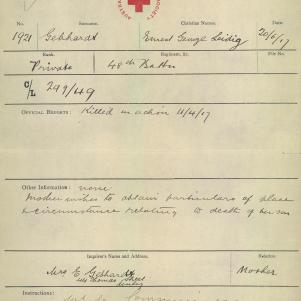 AUSTR
SOCIETY
No. Surname. Christian Names. Date.
1921 Gebhardt Ernest George Leidig 20/6/17
Rank. Regiment, &c. File No.
Private 48th Battn
C/L 299/49
OFFICIAL REPORTS: Killed in action 11/4/17
Other Information: none
Mother wishes to obtain particulars of place
& circumstance relating to death of her son
Inquirer's Name and Address. Relation
Mrs E Gebhardt Mother
Thomas Street
Unley
Instructions: